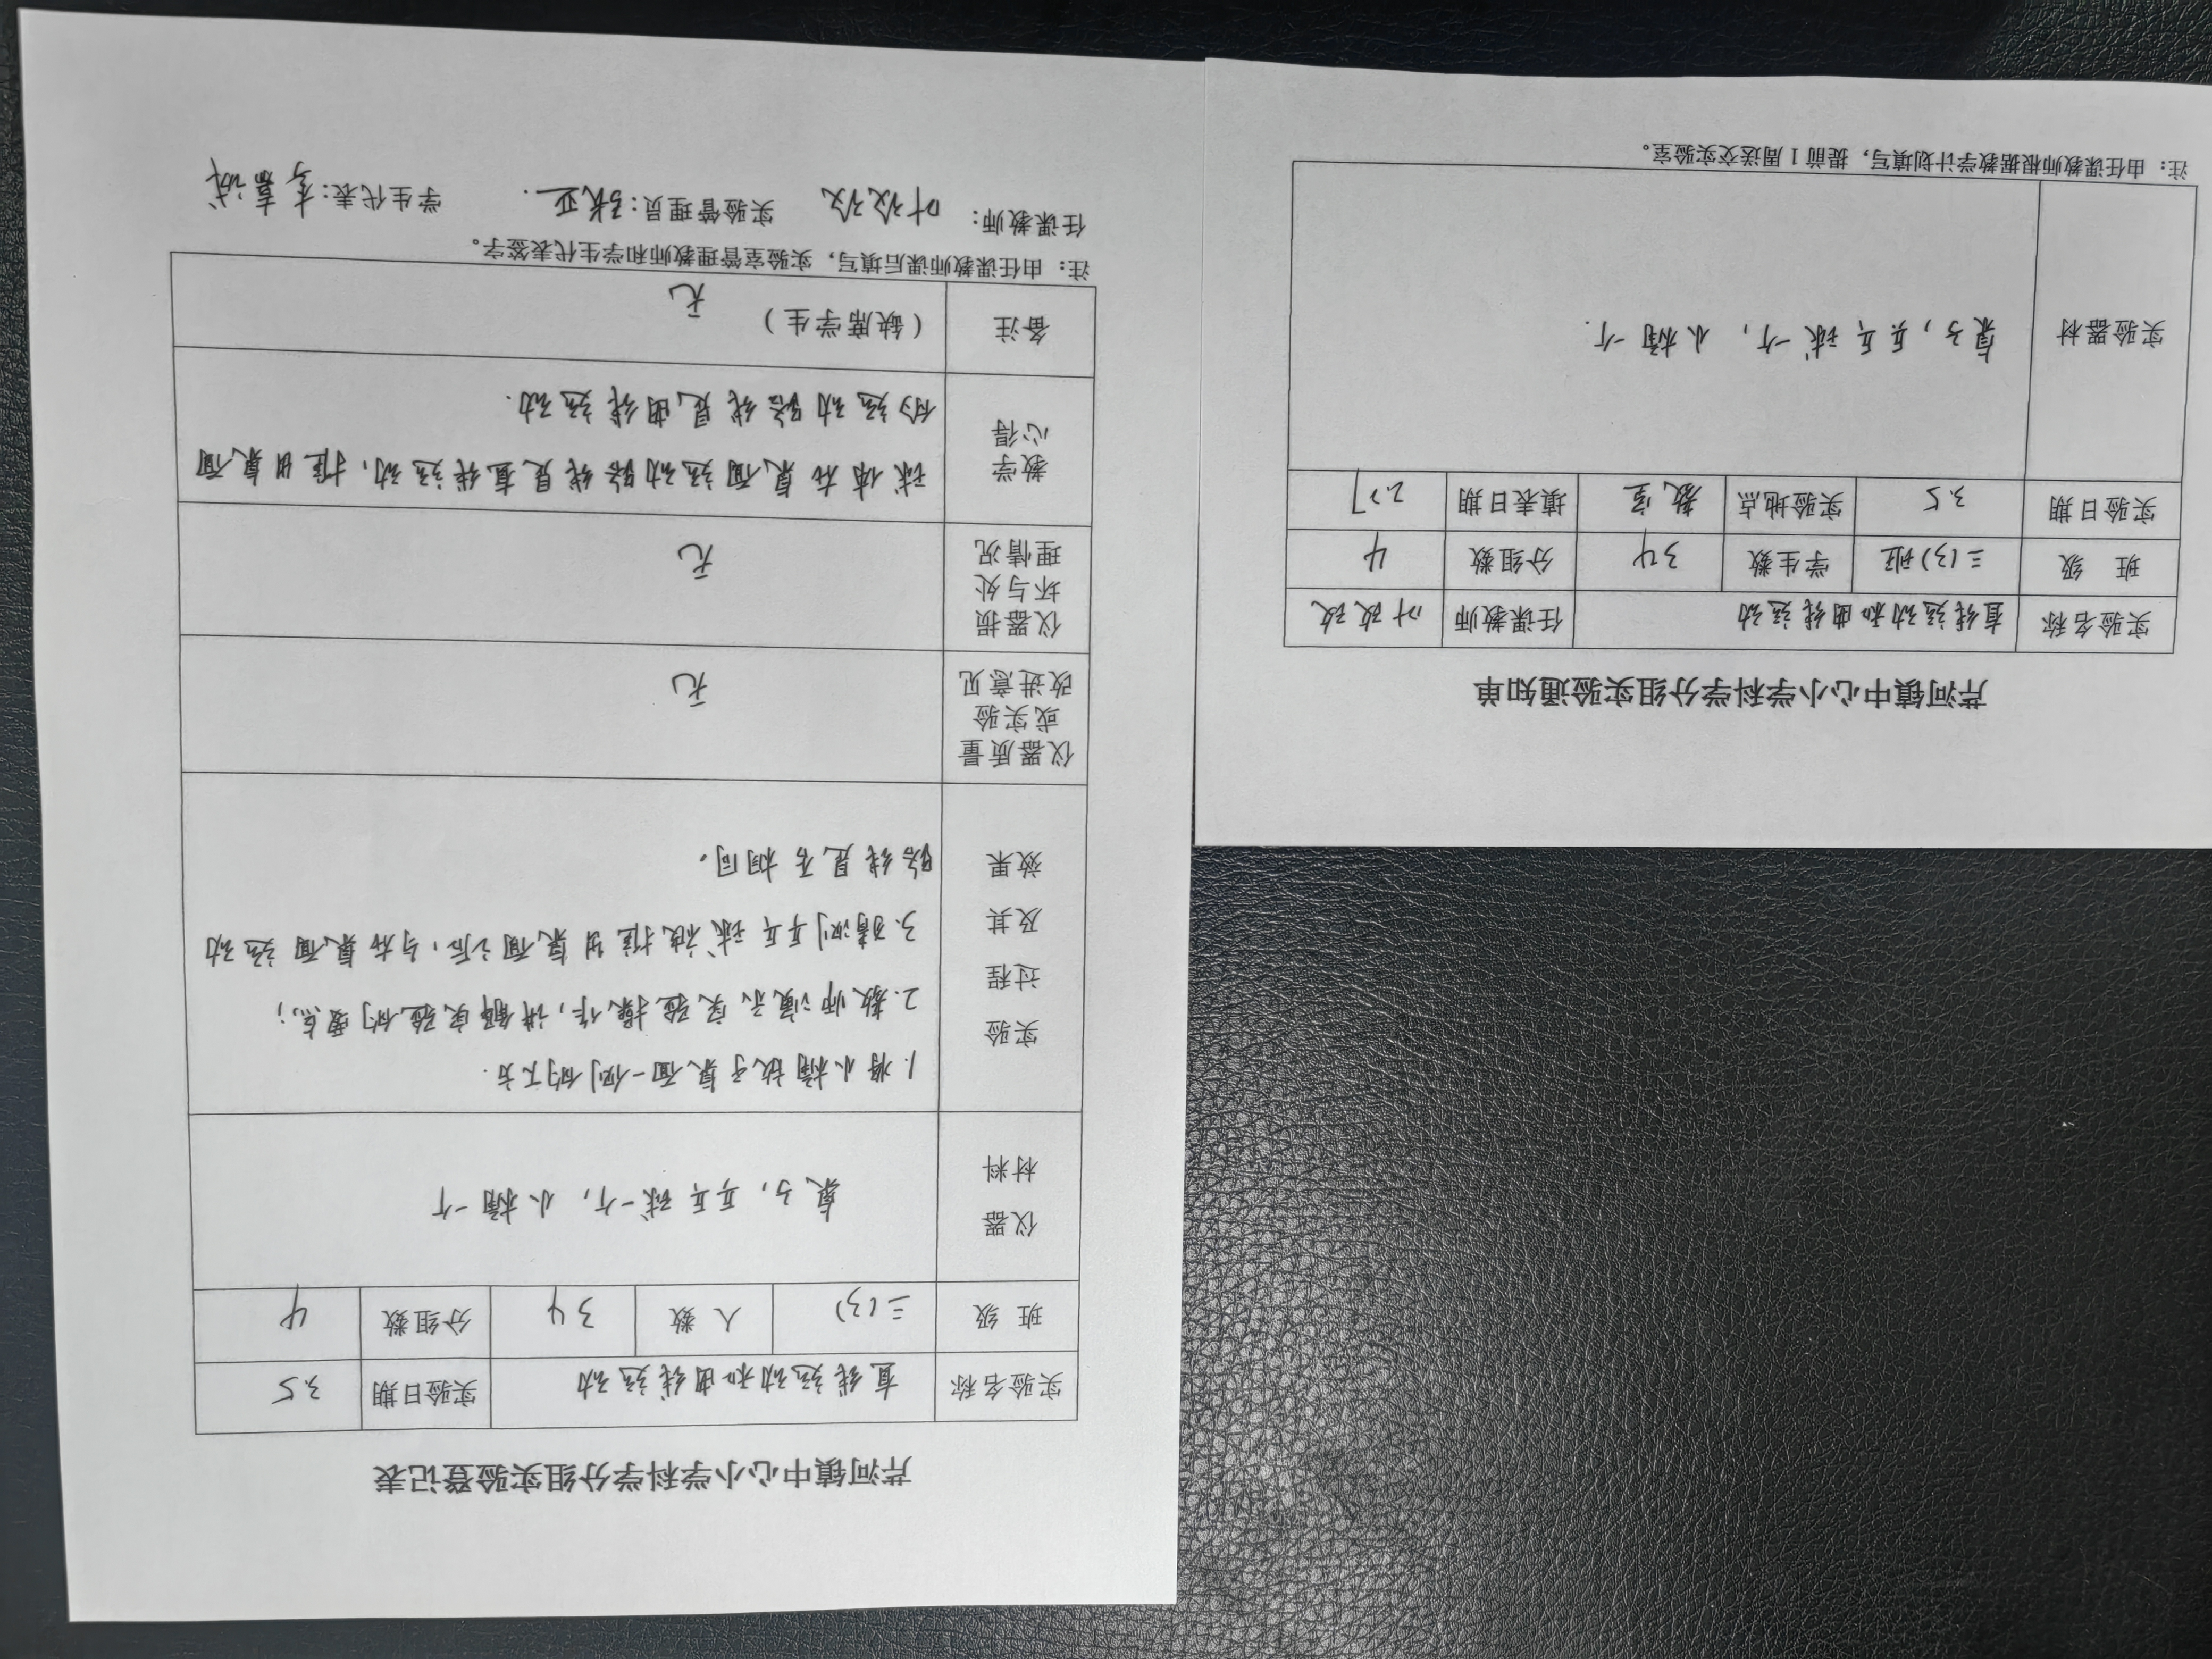 芹河镇中心小学科学分组实验通知单
实验名称 直线运动和曲线运动 任课教师 叶改改
班 级 三(3)班 学生数 34 分组数 4
实验日期 3.5 实验地点 教室 填表日期 2.27
实验器材 桌子,乒乓球一个,小桶一个.
注:由任课教师根据教学计划填写,提前1周送交实验室。
芹河镇中心小学科学分组实验登记表
实验名称 直线运动和曲线运动 实验日期 3.5
班 级 三(3) 人 数 34 分组数 4
仪器
材料
桌子,乒乓球一个,小桶一个
实验
过程
及其
效果
1.将小桶放于桌面一侧的下方.
2.教师演示实验操作,讲解实验的要点;
3.猜测乒乓球被推出桌面之后,与在桌面运动
路线是否相同。
仪器质量
或实验
改进意见
无
仪器损
坏与处
理情况
无
教学
心得
球体在桌面运动路线是直线运动,推出桌面
的运动路线是曲线运动.
备注 (缺席学生) 无
注:由任课教师课后填写,实验室管理教师和学生代表签字。
任课教师: 叶改改 实验管理员:张亚. 学生代表:李嘉诚